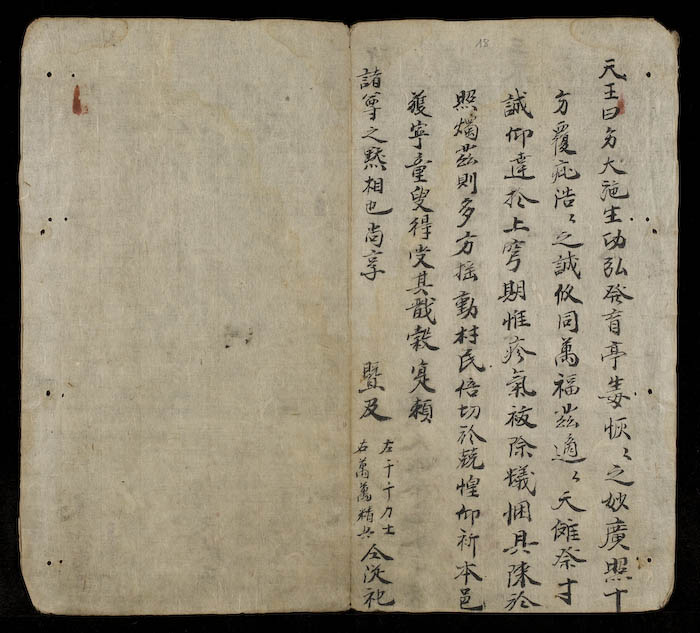 18
天王曰大施生功弘發育亭毒恢〻之妙廣照十
方覆庇浩〻之誠攸同萬福茲適〻天儺祭寸
誠仰達於上穹期惟疹氣祓除蟻悃具陳於
照燭茲則多方搖動村民倍切於兢惶仰祈本邑
獲寧童叟得受其戩穀寔頼
諸尊之黙相也尚享 曁及
左千千力士
右萬萬精兵
仝從祀